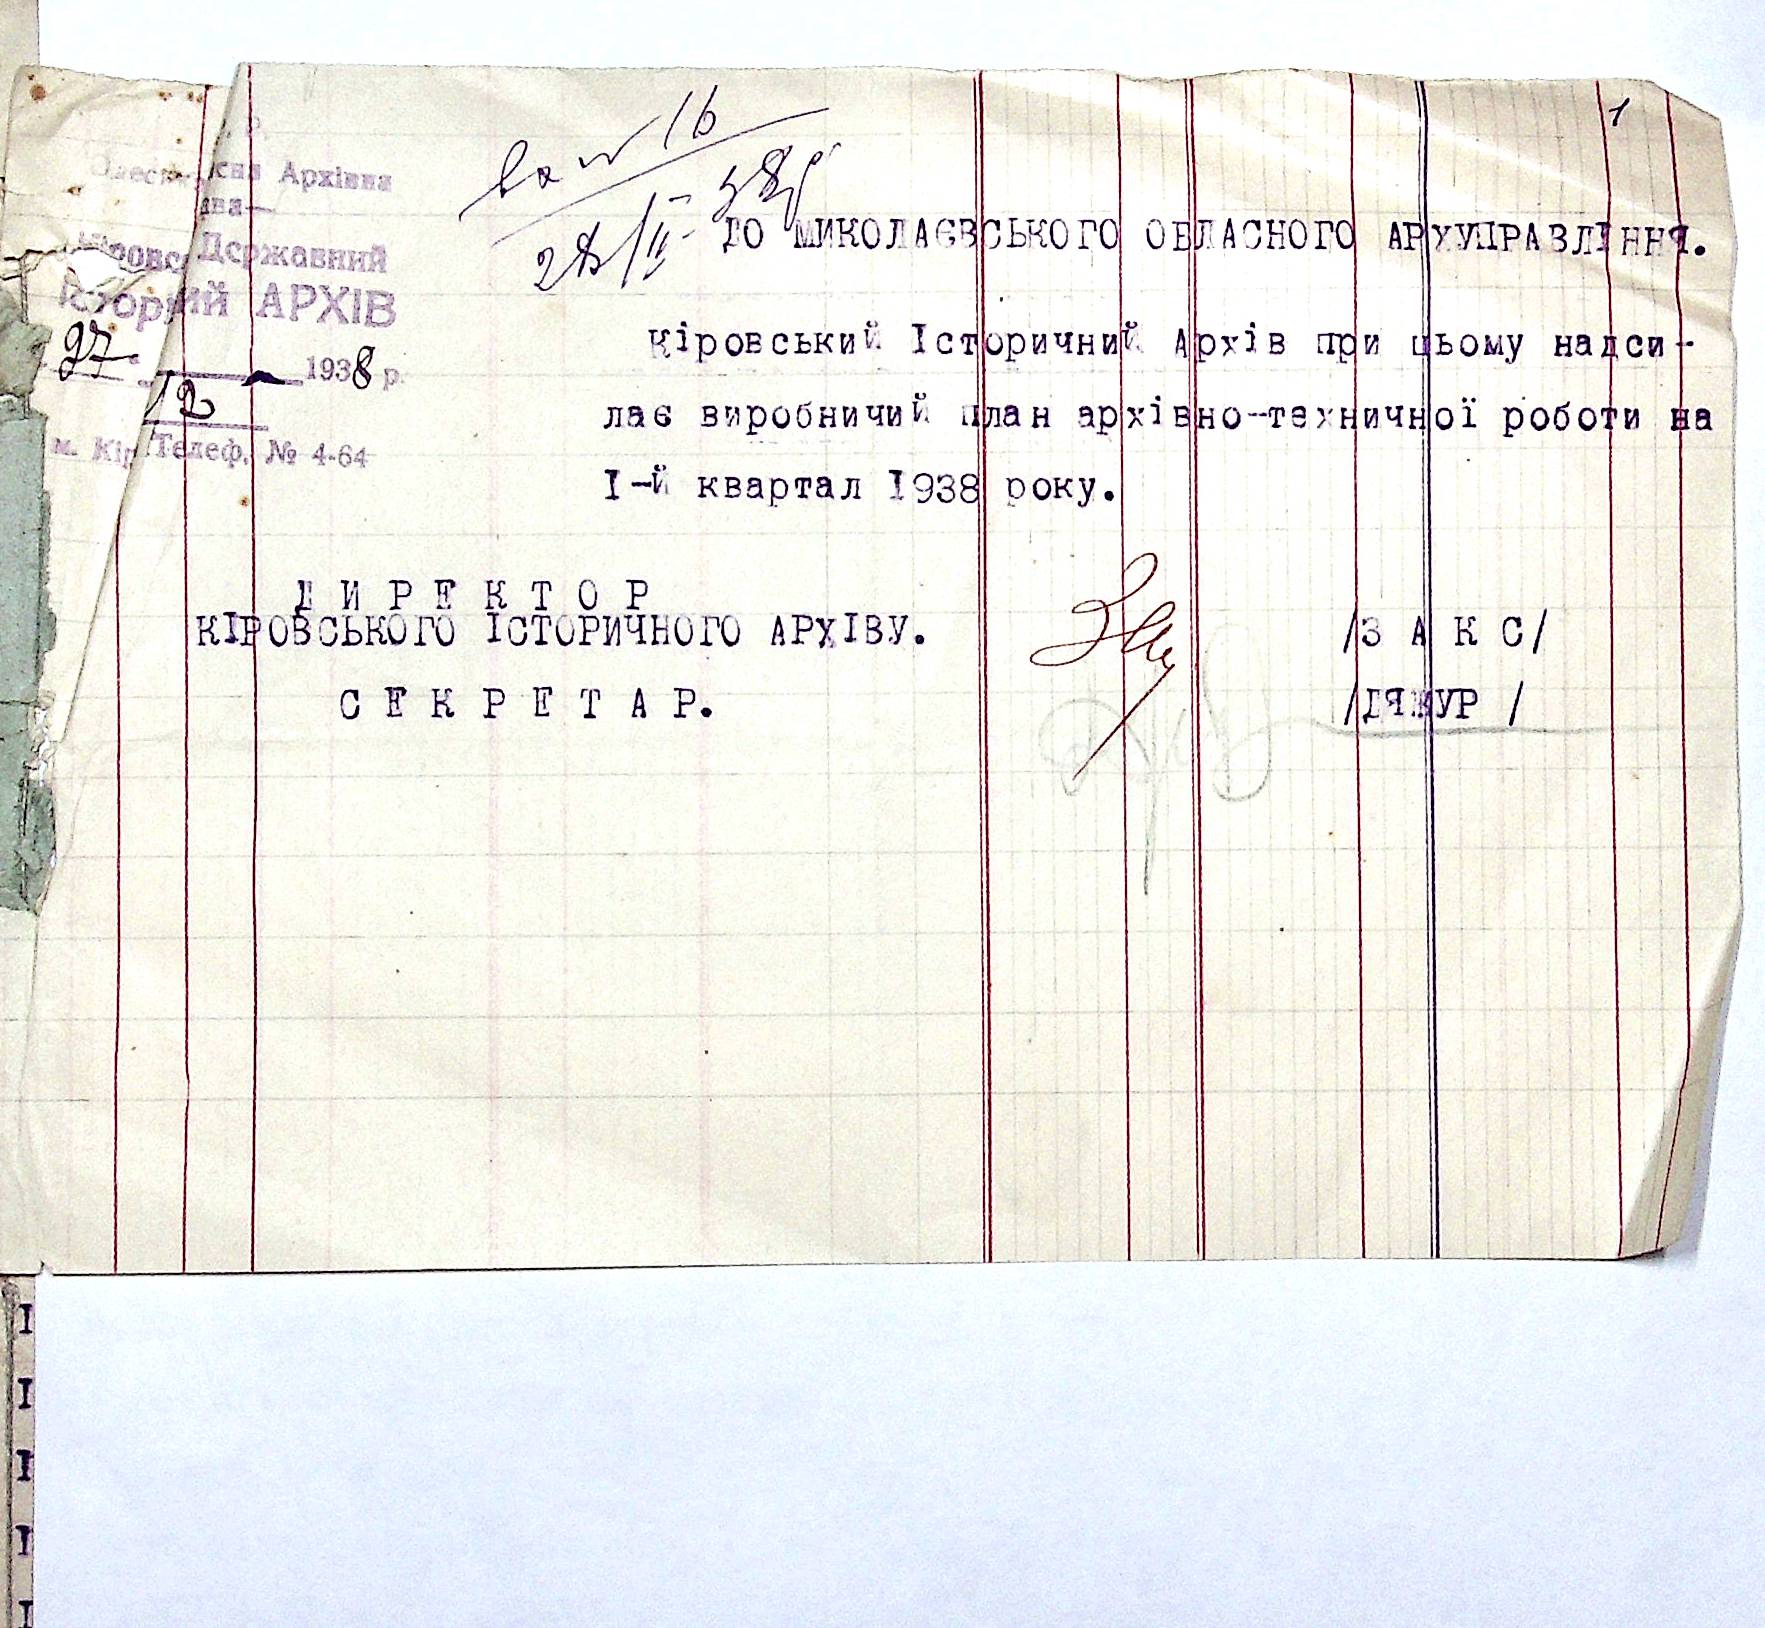 1
Вх № 16
28/II-38р
Архівна
Державний
АРХІВ
27
1938 р.
12
м. Кір Телеф. № 4-64
ДО МИКОЛАЄВСЬКОГО ОБЛАСНОГО АРХУПРАВЛІННЯ.
Кіровський Історичний Архів при цьому надси-
лає виробничий план архівно-техничної роботи на
І-й квартал 1938 року.
ДИРЕКТОР
КІРОВСЬКОГО ІСТОРИЧНОГО АРХІВУ. /ЗАКС/
СЕКРЕТАР. /ДЯЖУР /